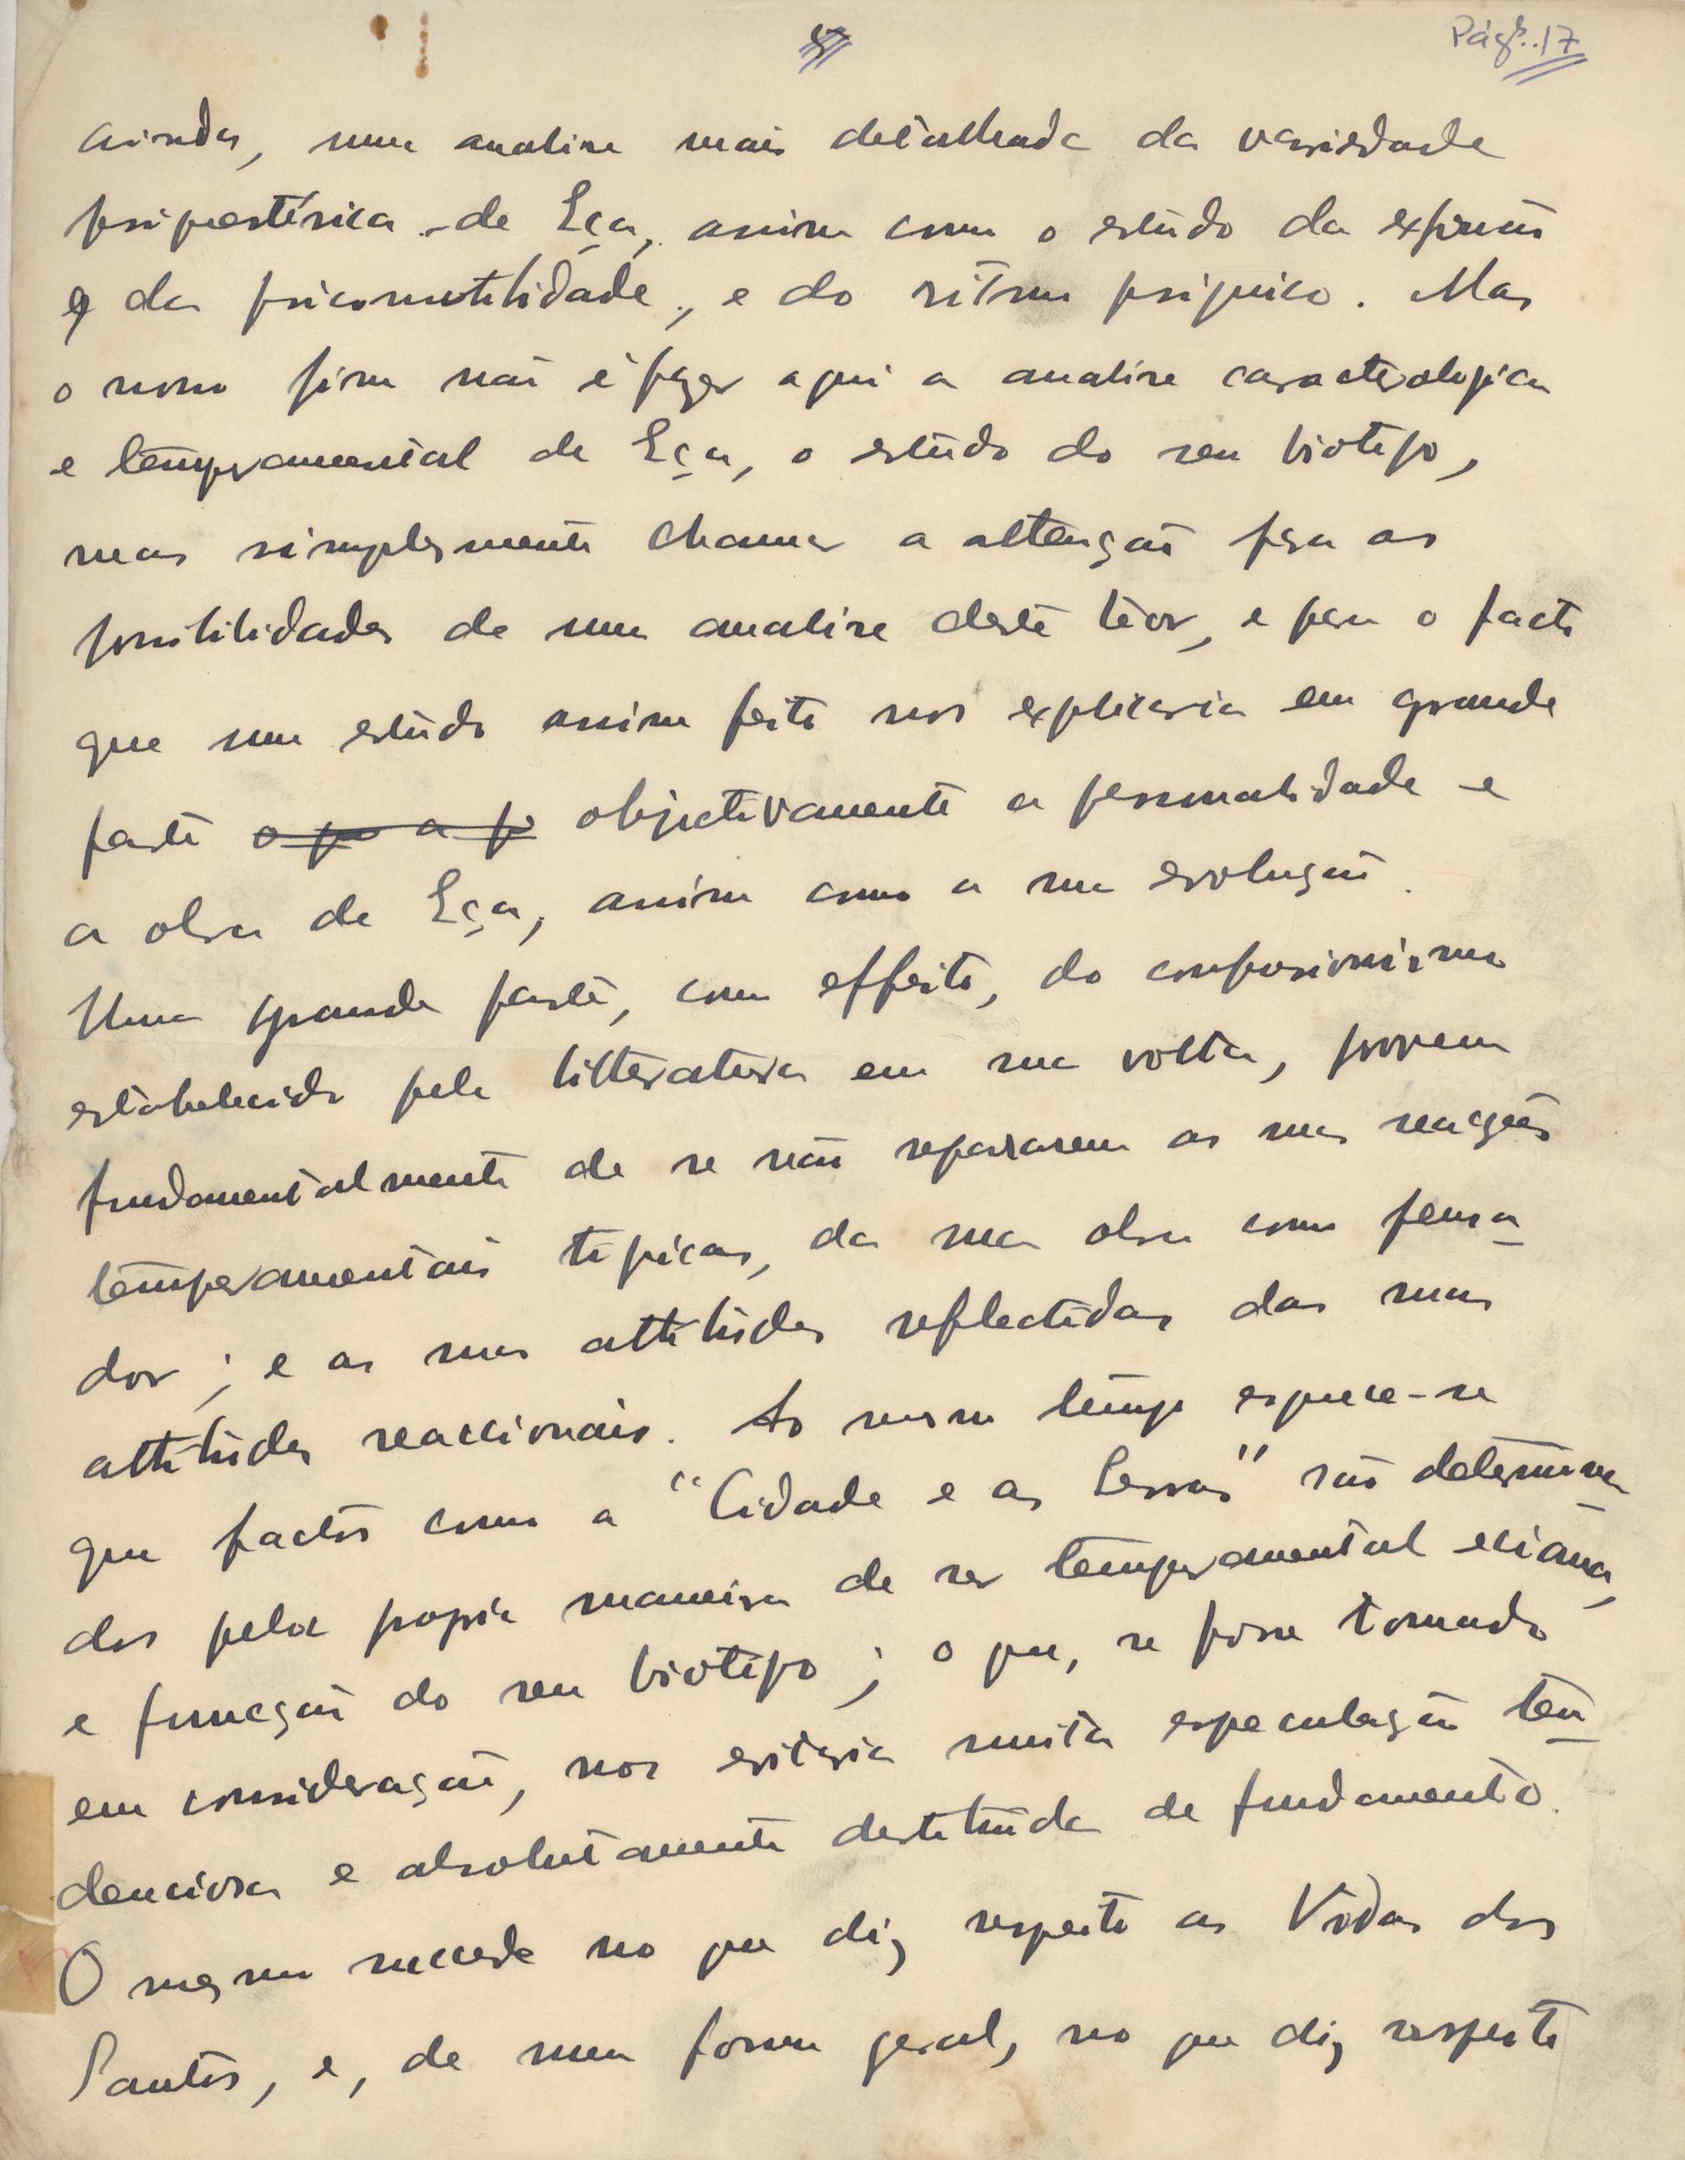 Pág. 17
ainda, uma analise mais detalhada da variedade
de Eça, assim como o estudo da expressão
e da psicomotilidade, e do ritmo psiquico. Mas
o nosso fim não é fazer aqui a analise caracterologica
e temperamental de Eça, o estudo do seu biotipo,
mas simplesmente chamar a attenção para as
possibilidades de uma analise deste teor, e para o facto
que um estudo assim feito nos explicaria em grande
parte objectivamente a personalidade e
a obra de Eça, assim como a sua evolução.
Uma grande parte, com effeito, do confusionismo
estabelecido pela litteratura em sua volta, provem
fundamentalmente de se não separarem as suas reacções
temperamentais tipicas, da sua obra como pensa-
dor; e as suas attitudes reflectidas das suas
attitudes reaccionais. Ao mesmo tempo esquece-se
que factos como a "Cidade e as Serras" são determina
dos pela propria maneira de ser temperamental eciana,
e funcção do seu biotipo; o que, se fosse tomado
em consideração, nos evitaria muita especulação ten-
denciosa e absolutamente destituida de fundamento.
O mesmo succede no que diz respeito as Vidas dos
Santos, e, de uma forma geral, no que diz respeito